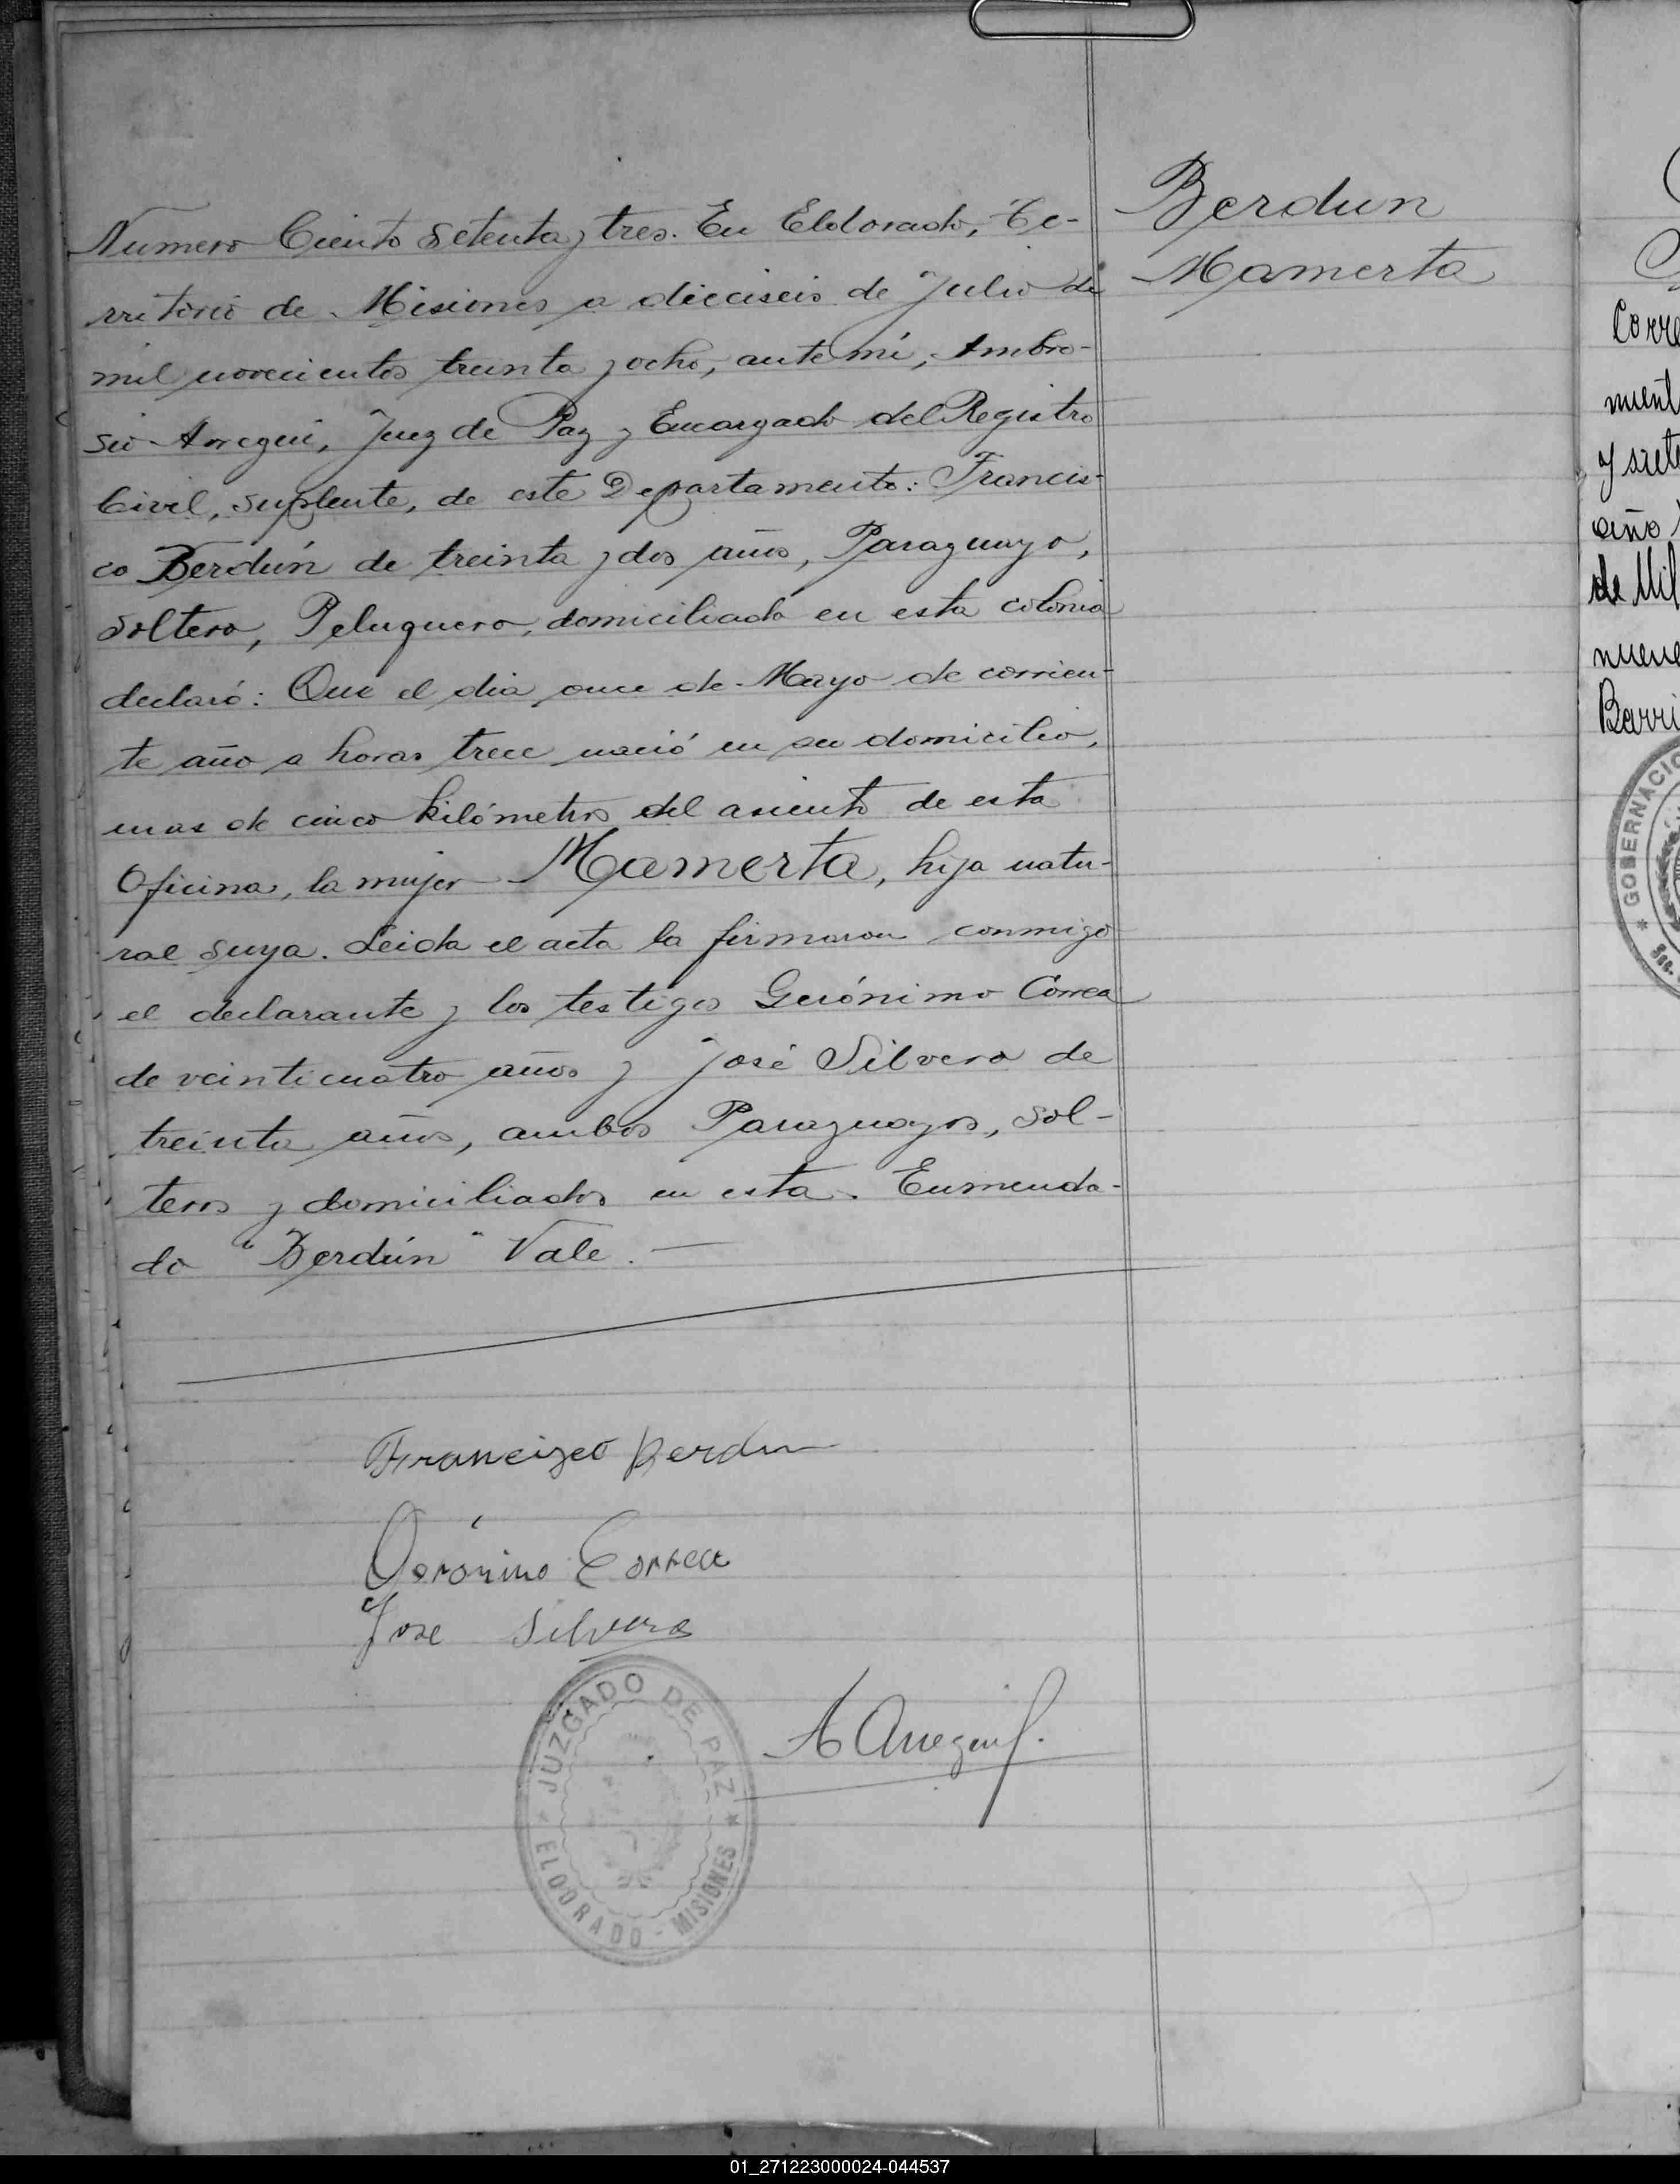 Numero Ciento Setenta y tres. En Eldorado, Te-
rritorio de Misiones a dieciseis de Julio de
mil novecientos treinta y ocho, ante mí, Ambro-
sio Arregui, Juez de Paz y Encargado del Registro
Civil, suplente, de este Departamento: Francis-
co Berdún de treinta y dos años, Paraguayo,
soltero, Peluquero, domiciliado en esta colonia
declaró: Que el dia once de Mayo de corrien-
te año a horas trece nació en su domicilio,
mas de cinco kilómetros del asiento de esta
Oficina, la mujer Mamerta, hija natu-
ral suya. Leida el acta la firmaron conmigo
el declarante y los testigos Gerónimo Correa
de veinticuatro años y José Silvero de
treinta años, ambos Paraguayos, sol-
teros y domiciliados en esta. Enmenda-
do "Berdún" Vale.
Berdun
Mamerta
Francizco Berdun
Gerónimo Correa
Jose Silvero
A Arregui
JUZGADO DE PAZ
ELDORADO - MISIONES
Corre
mient
y siete
año
de Mil
nueve
Barri
GOBERNACIO
01_271223000024-044537